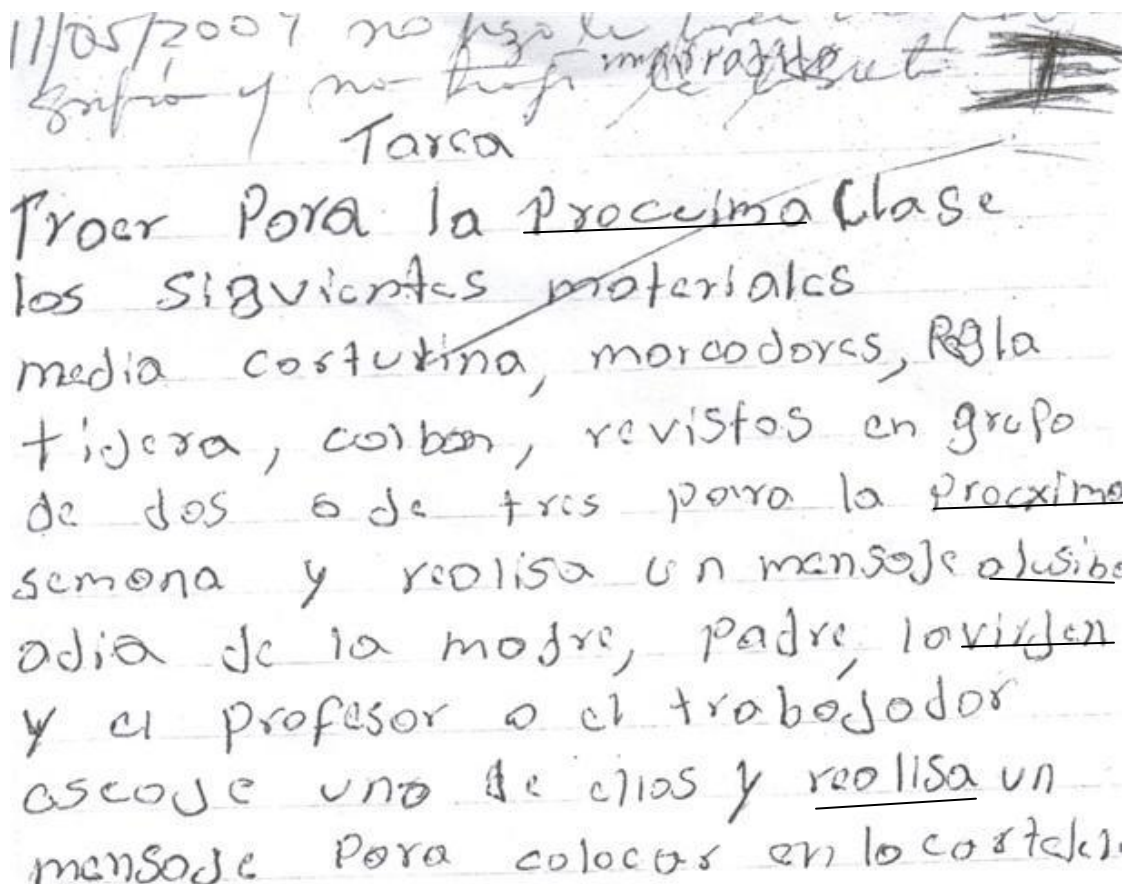 11/05/2009 no hizo la
y no trajo
Tarea
Traer Para la Proccima Clase
los siguientes materiales
media cartulina, marcadores, Regla
tijera, colbon, revistas en grupo
de dos o de tres para la procxima
semana y realisa un mensaje alusibo
adia de la madre, padre, la virjen
y el profesor o el trabajador
escoje uno de ellos y realisa un
mensaje Para colocar en la cartelera